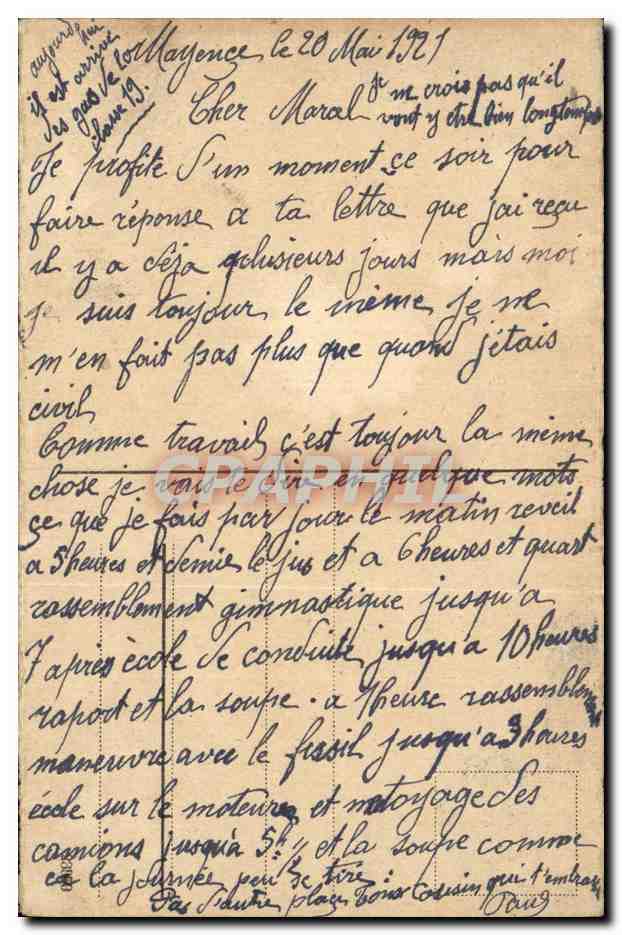 Mayence le 20 Mai 1921
aujourd'hui
il est arrivé
des gas de la
classe 19.
je ne crois pas qu'il
vont y etre bien longtemps
Cher Maral
Je profite d'un moment ce soir pour
faire réponse a ta lettre que jai reçu
il y a déja plusieurs jours mais moi
je suis toujour le même je ne
m'en fait pas plus que quand j'étais
civil
Comme travail c'est toujour la même
chose je vais te dire en quelque mots
ce que je fais par jour le matin reveil
a 5 heures et demie le jus et a 6 heures et quart
rassemblement gimnastique jusqu'a
7 apries école de conduite jusqu'a 10 heures
raport et la soupe. a 1 heure rassemblement
maneuvre avec le fusil jusqu'a 3 heures
école sur le moteure et netoyage des
camions jusqu'a 5h½ et la soupe comme
ca la journée peu se tiré
Pas d'autre place Tons cousin qui t'embrasse
Paul
CPAPHIL